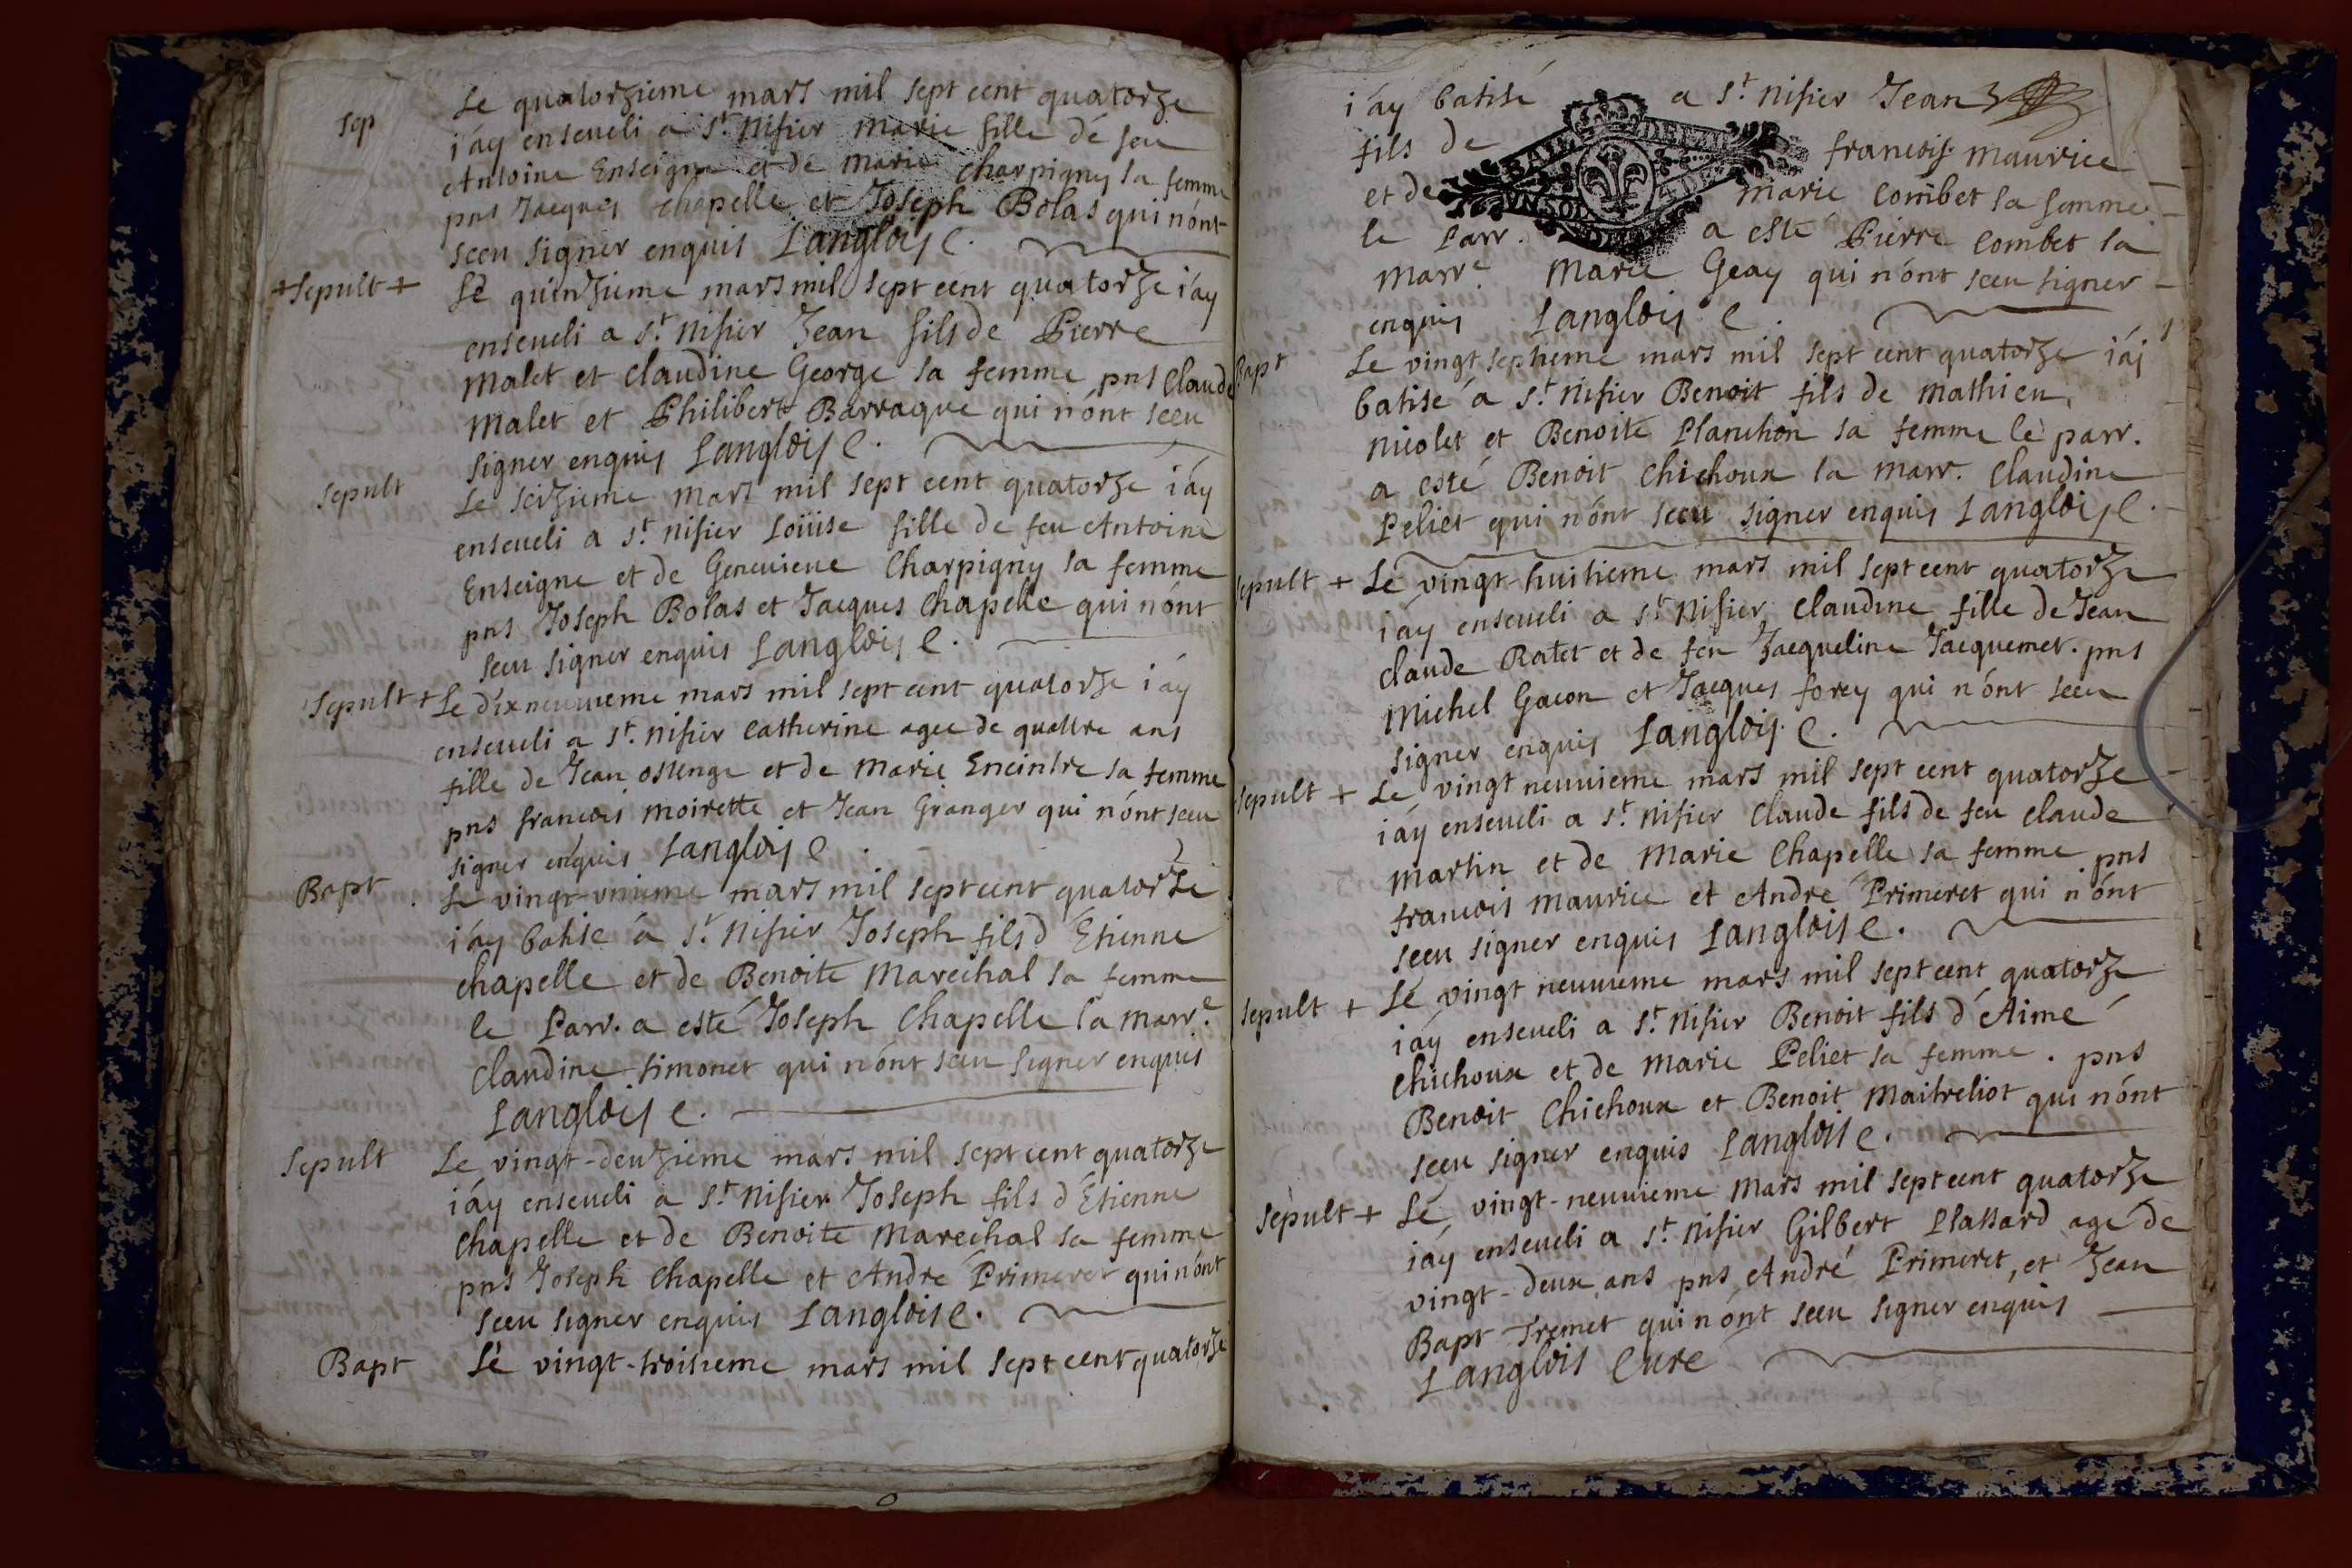 sep
Le quatorzieme mars mil sept cent quatorze
i'ay enseueli a St. Nisier Marie fille de feu
Antoine Enseigne et de Marie Charpigny sa femme
pns Jacques Chapelle et Joseph Bolas qui n'ont
sceu signer enquis Langlois C.
+ Sepult +
Le quinzieme mars mil sept cent quatorze i'ay
enseueli a St. Nisier Jean fils de Pierre
Malet et Claudine George sa femme pns Claude
Malet et Philibert Barraque qui n'ont sceu
signer enquis Langlois C.
Sepult
Le seizieme mars mil sept cent quatorze i'ay
enseueli a St. Nisier Loüise fille de feu Antoine
Enseigne et de Geneuieue Charpigny sa femme
pns Joseph Bolas et Jacques Chapelle qui n'ont
sceu signer enquis Langlois C.
Sepult +
Le dixneuuieme mars mil sept cent quatorze i'ay
enseueli a St. Nisier Catherine agee de quattre ans
fille de Jean ostenge et de Marie Enceintre sa femme
pns francois moirette et Jean Granger qui n'ont sceu
signer enquis Langlois C.
Bapt
Le vingt-vnieme mars mil sept cent quatorze
i'ay batisé á St. Nisier Joseph fils d'Etienne
Chapelle et de Benoite Marechal sa femme
le Parr. a esté Joseph Chapelle la marr.e
Claudine Simonet qui n'ont sceu signer enquis
Langlois C.
Sepult
Le vingt-deuzieme mars mil sept cent quatorze
i'ay enseueli a St. Nisier Joseph fils d'Etienne
Chapelle et de Benoite Marechal sa femme
pns Joseph Chapelle et André Primeret qui n'ont
sceu signer enquis Langlois C.
Bapt
Le vingt-troisieme mars mil sept cent quatorze
i'ay batisé a St. Nisier Jean
fils de francois maurice
et de marie Combet sa femme
le Parr. a esté Pierre Combet la
Marr.e Marie Geay qui n'ont sceu signer
enquis Langlois C.
Bapt
Le vingt septieme mars mil sept cent quatorze i'aj
batisé á St. Nisier Benoit fils de Mathieu
Nicolet et Benoite Planchon sa femme le parr.
a esté Benoit Chichoux la marr. Claudine
Peliet qui n'ont sceu signer enquis Langlois C.
Sepult +
Le vingt-huitieme mars mil sept cent quatorze
i'ay enseueli a St. Nisier Claudine fille de Jean
Claude Ratet et de feu Jacqueline Jacquemet. pns
Michel Gacon et Jacques forey qui n'ont sceu
signer enquis Langlois C.
Sepult +
Le vingt neuuieme mars mil sept cent quatorze
i'ay enseueli a St. Nisier Claude fils de feu Claude
Martin et de Marie Chapelle sa femme pns
francois Maurice et André Primeret qui n'ont
sceu signer enquis Langlois C.
Sepult +
Le vingt neuuieme mars mil sept cent quatorze
i'ay enseueli a St. Nisier Benoit fils d'Aimé
Chichoux et de Marie Peliet sa femme. pns
Benoit Chichoux et Benoit Maitreliot qui n'ont
sceu signer enquis Langlois C.
Sepult +
Le vingt-neuuieme Mars mil sept cent quatorze
i'ay enseueli a St. Nisier Gilbert Plassard agé de
vingt-deux ans pns André Primeret, et Jean
Bapt Tremet qui n'ont sceu signer enquis
Langlois Curé